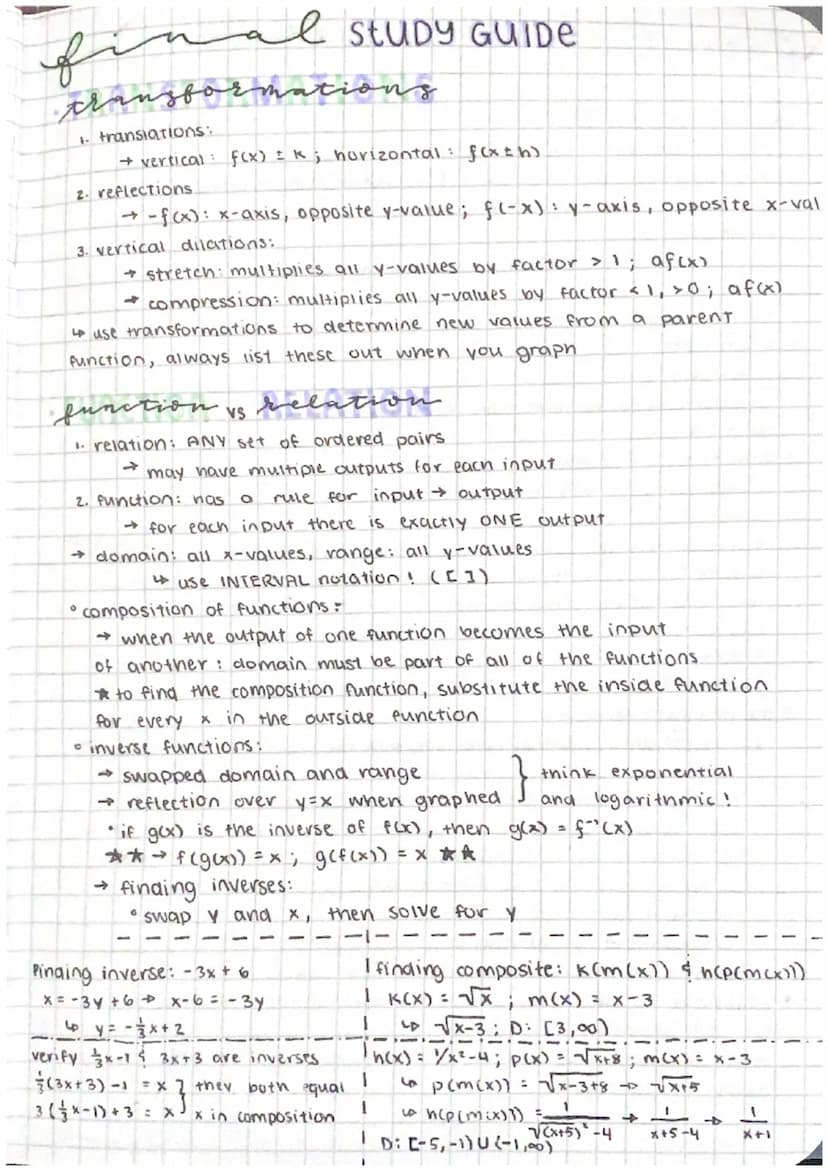 final STUDY GUIDE
transformations
1. translations:
→ vertical: f(x) ± k; horizontal: f(x±h)
2. reflections
→ -f(x): x-axis, opposite y-value; f(-x): y-axis, opposite x-val
3. vertical dilations:
→ stretch: multiplies all y-values by factor > 1; af(x)
→ compression: multiplies all y-values by factor < 1, > 0; af(x)
↳ use transformations to determine new values from a parent
function, always list these out when you graph
function vs relation
1. relation: ANY set of ordered pairs
→ may have multiple outputs for each input
2. function: has a rule for input → output
→ for each input there is exactly ONE output
→ domain: all x-values, range: all y-values
↳ use INTERVAL notation! ([])
° composition of functions:
→ when the output of one function becomes the input
of another: domain must be part of all of the functions
★ to find the composition function, substitute the inside function
for every x in the outside function
° inverse functions:
→ swapped domain and range } think exponential
→ reflection over y=x when graphed } and logarithmic!
• if g(x) is the inverse of f(x), then g(x) = f⁻¹(x)
★★ → f(g(x)) = x; g(f(x)) = x ★★
→ finding inverses:
° swap y and x, then solve for y
finding inverse: -3x + 6
x = -3y + 6 → x-6 = -3y
↳ y = -⅓x + 2
verify ⅓x-1 & 3x+3 are inverses
⅓(3x+3) -1 = x } they both equal
3(⅓x-1)+3 = x } x in composition
finding composite: k(m(x)) & h(p(m(x)))
k(x) = √x; m(x) = x-3
↳ √x-3; D: [3,∞)
h(x) = 1/x²-4; p(x) = √x+8; m(x) = x-3
↳ p(m(x)) = √x-3+8 → √x+5
↳ h(p(m(x))) = 1/√(x+5)²-4 → 1/x+5-4 → 1/x+1
D: [-5,-1) U (-1,∞)